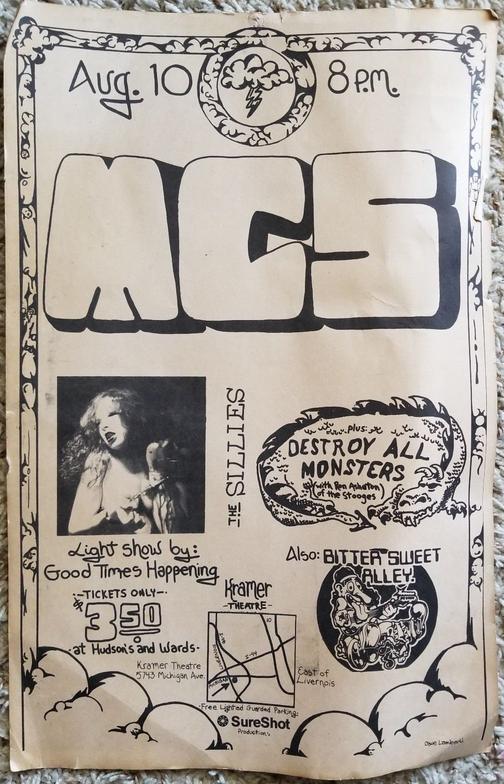 Aug. 10 8 P.M.
MC5
THE SILLIES
plus:
DESTROY ALL
MONSTERS
(with Ron Asheton)
(of the Stooges
Light show by:
Good Times Happening
Also: BITTER SWEET
ALLEY
TICKETS ONLY
$3.50
at Hudson's and Wards
Kramer
THEATRE
Kramer Theatre
5743 Michigan Ave.
I-94
East of
Livernois
Free Lighted Guarded Parking
SureShot
Productions